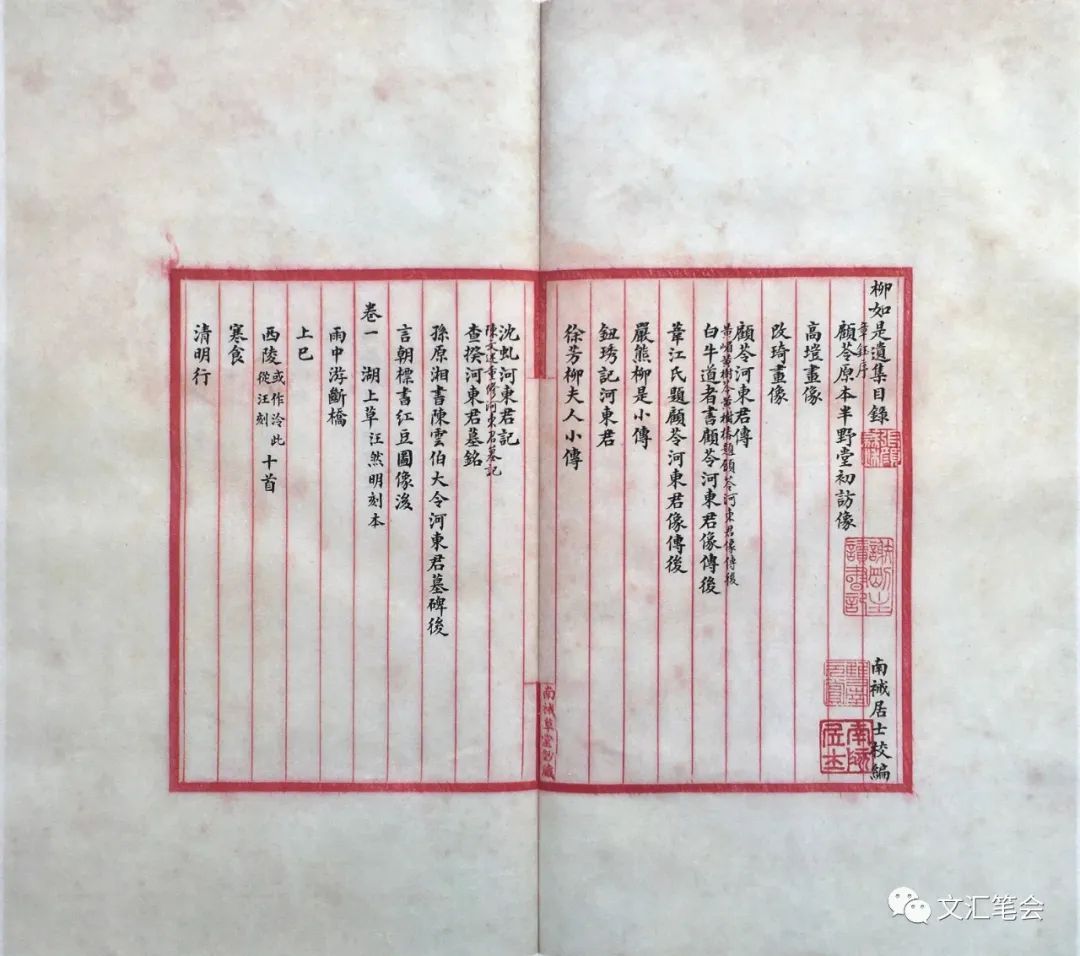 柳如是遺集目錄
南祴居士校編
章鈺序
顧苓原本半野堂初訪像
高塏畫像
改琦畫像
顧苓河東君傳
黃嵋黃樹苓黃樹椿題顧苓河東君像傳後
白牛道者書顧苓河東君像傳後
華江氏題顧苓河東君像傳後
嚴熊柳是小傳
鈕琇記河東君
徐芳柳夫人小傳
沈虬河東君記
陳文述重修河東君墓記
查揆河東君墓銘
孫原湘書陳雲伯大令河東君墓碑後
言朝標書紅豆圖像後
卷一 湖上草 汪然明刻本
雨中游斷橋
上巳
西陵 或作泠此從汪刻 十首
寒食
清明行
南祴草堂鈔藏
南祴居士
文汇笔会